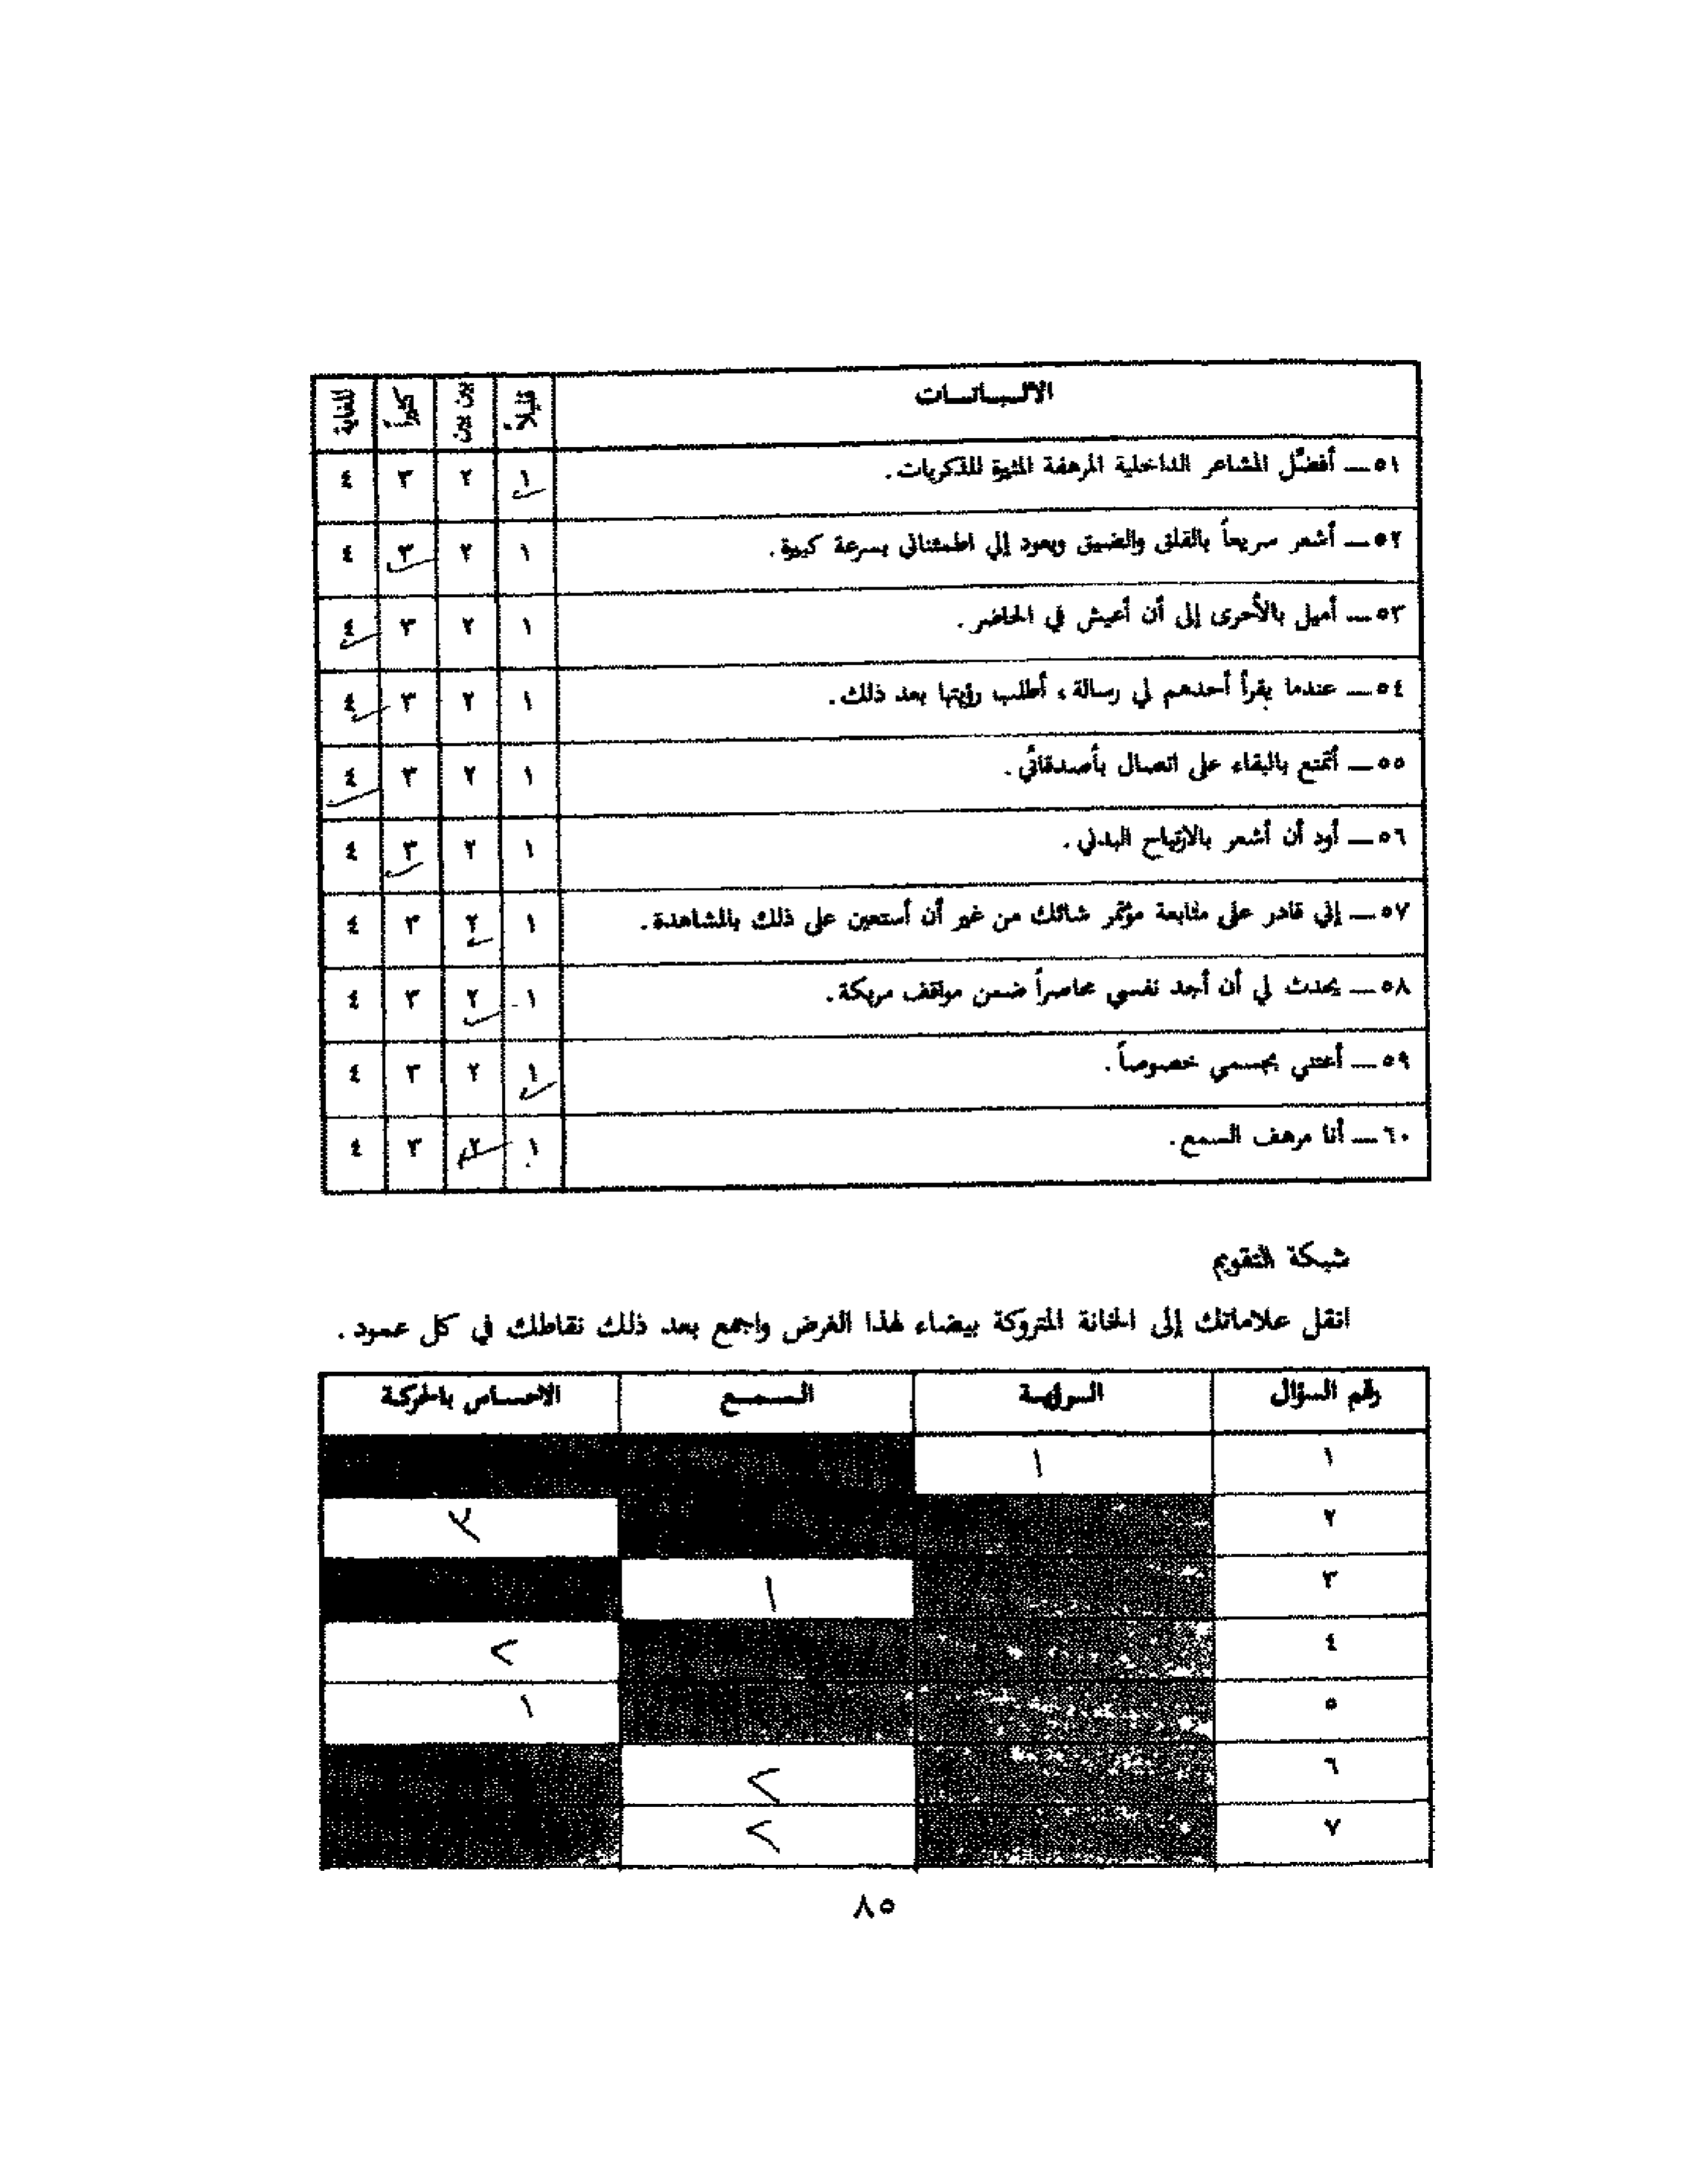 الاثـبـاتـات قليلاً بين بين كثيراً للغاية
٥١ — أفضّل المشاعر الداخلية المرهفة المثيرة للذكريات. ١ ٢ ٣ ٤
٥٢ — أشعر سريعاً بالقلق والضيق ويعود إلي اطمئناني بسرعة كبيرة. ١ ٢ ٣ ٤
٥٣ — أميل بالأحرى إلى أن أعيش في الحاضر. ١ ٢ ٣ ٤
٥٤ — عندما يقرأ أحدهم لي رسالة، أطلب رؤيتها بعد ذلك. ١ ٢ ٣ ٤
٥٥ — أتمتع بالبقاء على اتصال بأصدقائي. ١ ٢ ٣ ٤
٥٦ — أود أن أشعر بالارتياح البدني. ١ ٢ ٣ ٤
٥٧ — إني قادر على متابعة مؤتمر شائك من غير أن أستعين على ذلك بالمشاهدة. ١ ٢ ٣ ٤
٥٨ — يحدث لي أن أجد نفسي محاصراً ضمن مواقف مربكة. ١ ٢ ٣ ٤
٥٩ — أعتني بجسمي خصوصاً. ١ ٢ ٣ ٤
٦٠ — أنا مرهف السمع. ١ ٢ ٣ ٤
شبكة التقويم
انقل علاماتك إلى الخانة المتروكة بيضاء لهذا الغرض واجمع بعد ذلك نقاطك في كل عمود.
رقم السؤال الـرؤيـة الـسـمـع الاحساس بالحركة
١ ١
٢ ٣
٣ ١
٤ ٢
٥ ١
٦ ٢
٧ ٢
٨٥